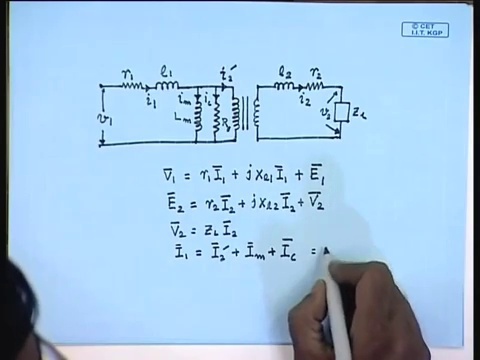 © CET
I.I.T. KGP
r₁ l₁ i₂′ l₂ r₂
i₁ i_m i_c i₂
v₁ L_m R_c v₂ Z_L
V̄₁ = r₁Ī₁ + jx_l₁Ī₁ + Ē₁
Ē₂ = r₂Ī₂ + jx_l₂Ī₂ + V̄₂
V̄₂ = Z_L Ī₂
Ī₁ = Ī₂′ + Ī_m + Ī_c =